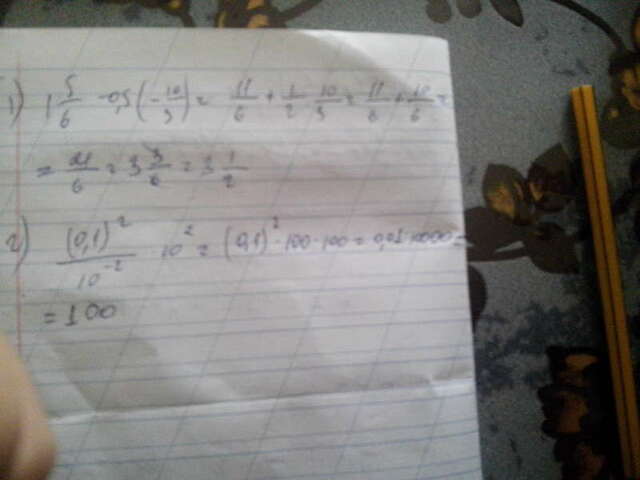 1) 1 5/6 - 0,5 (- 10/3) = 11/6 + 1/2 · 10/3 = 11/6 + 10/6 =
= 21/6 = 3 3/6 = 3 1/2
2) (0,1)² / 10⁻² · 10² = (0,1)² · 100 · 100 = 0,01 · 10000 =
= 100